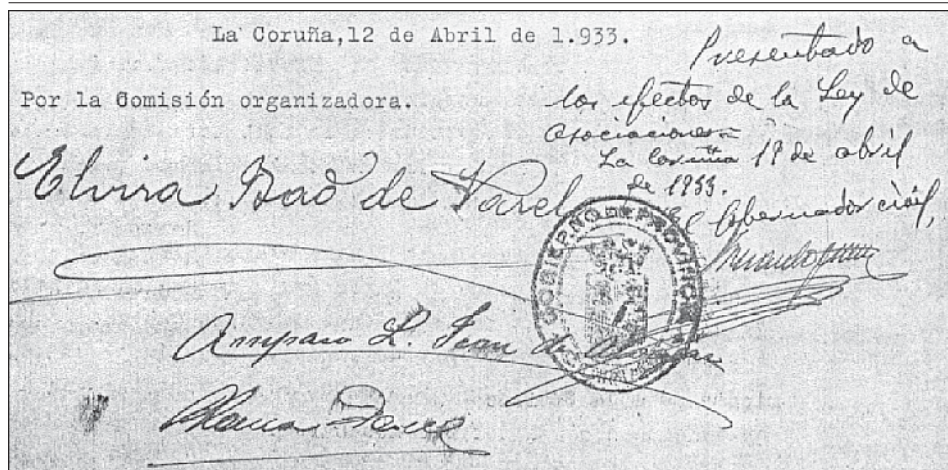 La Coruña,12 de Abril de 1.933.
Por la Comisión organizadora.
Presentado a
los efectos de la Ley de
Asociaciones=
La Coruña 19 de abril
de 1933.
El Gobernador civil,
Elvira Bao de Varela
GOBIERNO DE PROVINCIA
Amparo L. Jean